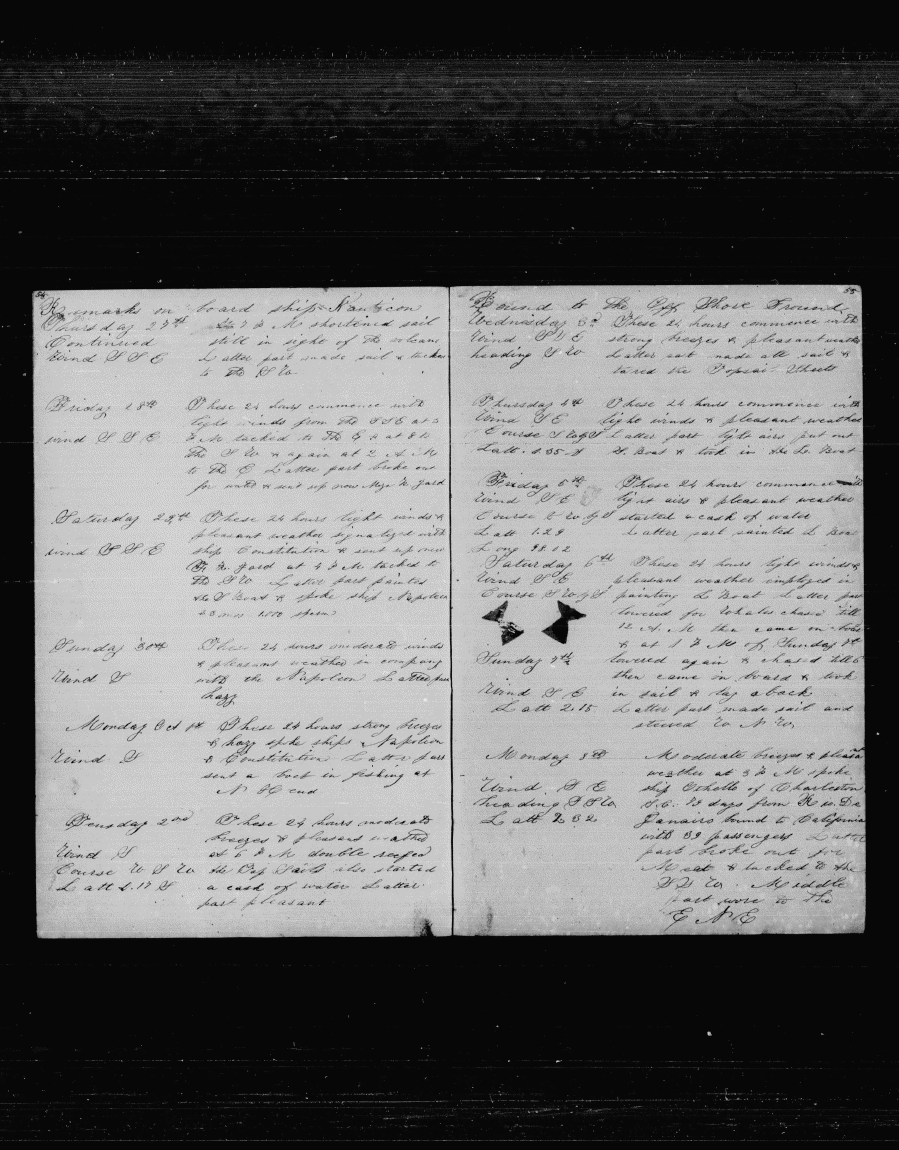 54
Remarks on board ship Nauticon
Thursday 27th at 7 P M shortened sail
Continued still in sight of the
Wind S S E Latter part made sail & tacked
to the S W
Friday 28th These 24 hours commence with
light winds from the SSE at 3
wind S S E P M tacked to the E & at 8 to
the S W & again at 2 A M
to the E Latter part broke out
for & sent up new Mizn T yard
Saturday 29th These 24 hours light winds &
pleasant weather signalized with
wind S S E ship Constitution & sent up new
yard at 4 P M tacked to
the S W Latter part painted
the S Boat & spoke ship Napoleon
23 mos 1550 sperm
Sunday 30th These 24 hours moderate winds
& pleasant weather in company
Wind S with the Napoleon Latter part
hazy
Monday Oct 1st These 24 hours strong breezes
& hazy spoke ships Napoleon
Wind S & Constitution Latter part
sent a boat in fishing at
N H end
Tuesday 2nd These 24 hours moderate
breezes & pleasant weather
Wind S at 6 P M double reefed
Course W S W the Top Sails also started
Latt 1.17 S a cask of water Latter
part pleasant
55
Bound to the Off Shore Ground
Wednesday 3rd These 24 hours commence with
Wind S E strong breezes & pleasant weather
heading S W Latter part made all sail &
the Topsail Sheets
Thursday 4th These 24 hours commence with
Wind SE light winds & pleasant weather
Course S W by S Latter part light airs put out
Latt. 1.35 S Boat & took in the L Boat
Friday 5th These 24 hours commence with
Wind S E light airs & pleasant weather
Course S W by S started a cask of water
Latt 1.29 Latter part painted L Boat
Long 98.12
Saturday 6th These 24 hours light winds &
Wind S E pleasant weather employed in
Course S W by S painting L Boat Latter part
lowered for Whales chased till
12 A. M then came on board
& at 1 P M of Sunday 7th
Sunday 7th lowered again & chased till 6
then came on board & took
Wind S E in sail & lay aback
Latt 2.15 Latter part made sail and
steered W N W
Monday 8th Moderate breezes & pleasant
weather at 3 P M spoke
Wind S E ship Othello of Charleston
heading S S W S.C. 73 days from Rio De
Latt 2.32 Janairo bound to California
with 39 passengers Latter
part broke out for
Meat & tacked to the
S S W. Middle
part wore to the
E N E